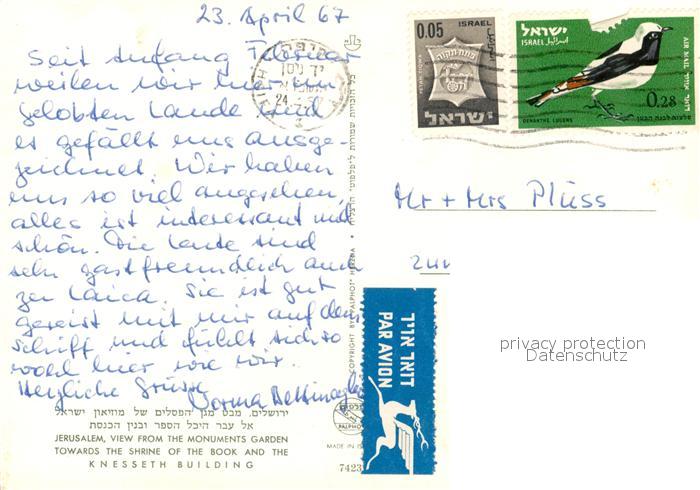 23. April 67
Seit Anfang Februar
weilen wir hier im
gelobten Lande und
es gefällt uns ausge-
zeichnet. Wir haben
uns so viel angesehen,
alles ist interessant und
schön. Die Leute sind
sehr gastfreundlich auch
zu Laica. Sie ist gut
gereist mit mir auf dem
Schiff und fühlt sich so
wohl hier wie wir.
Herzliche Grüsse
Norma
ירושלים, מבט מגן הפסלים של מוזיאון ישראל
אל עבר היכל הספר ובנין הכנסת
JERUSALEM, VIEW FROM THE MONUMENTS GARDEN
TOWARDS THE SHRINE OF THE BOOK AND THE
KNESSETH BUILDING
כל הזכויות שמורות ל"פלפוט" הרצליה
COPYRIGHT BY "PALPHOT" HERZLIA
PALPHOT
MADE IN IS
7423
חיפה
HAIFA
24.
0.05
ISRAEL
פתח תקוה
ישראל
ישראל
ISRAEL
AIR MAIL
דואר אויר
0.28
OENANTHE LUGENS
Mr + Mrs Plüss
Zür
דואר אויר
PAR AVION
privacy protection
Datenschutz